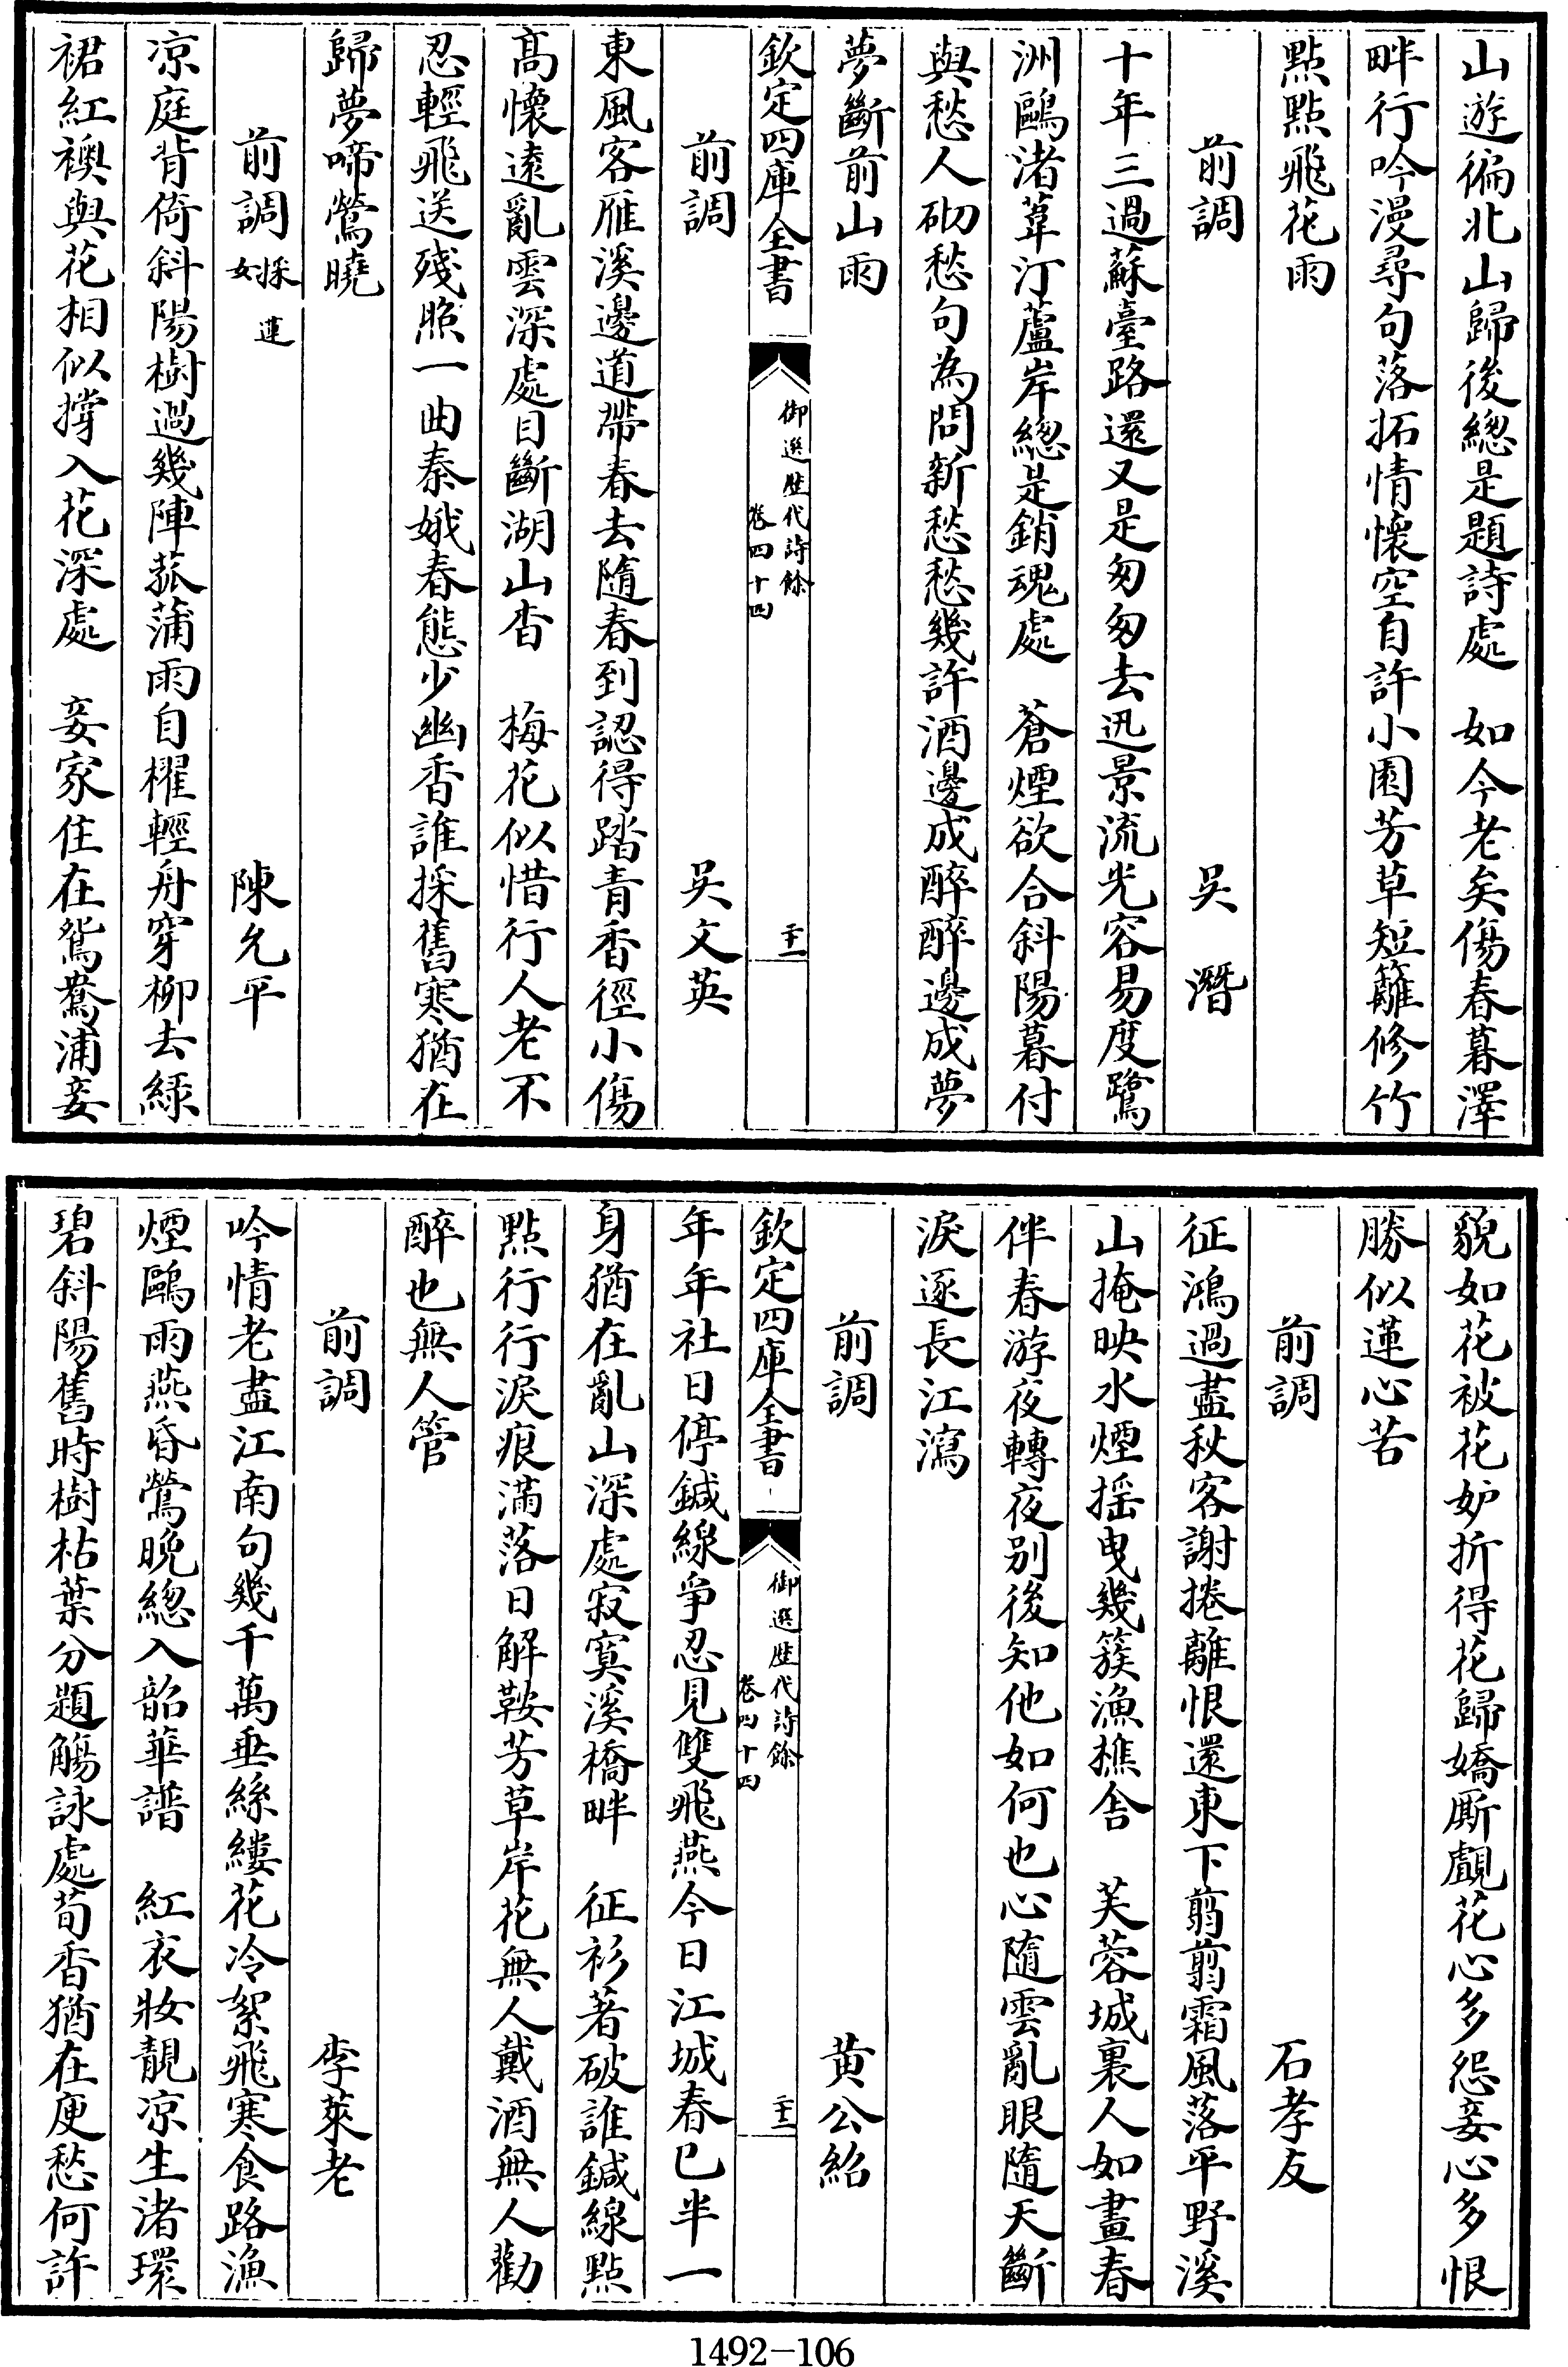 山遊徧北山歸後總是題詩處　如今老矣傷春暮澤
畔行吟漫尋句落拓情懷空自許小園芳草短籬修竹
㸃㸃飛花雨
前調　吳潛
十年三過蘇臺路還又是匆匆去迅景流光容易度鷺
洲鷗渚葦汀蘆岸總是銷魂處　蒼煙欲合斜陽暮付
與愁人砌愁句為問新愁愁幾許酒邊成醉醉邊成夢
夢斷前山雨
欽定四庫全書　御選歷代詩餘　卷四十四　二十一
前調　吳文英
東風客雁溪邊道帶春去隨春到認得踏青香徑小傷
高懷遠亂雲深處目斷湖山杳　梅花似惜行人老不
忍輕飛送殘照一曲秦娥春態少幽香誰採舊寒猶在
歸夢啼鶯曉
前調　採蓮女　陳允平
凉庭背倚斜陽樹過幾陣菰蒲雨自櫂輕舟穿柳去綠
裙紅襖與花相似撐入花深處　妾家住在鴛鴦浦妾
貌如花被花妒折得花歸嬌厮覷花心多怨妾心多恨
勝似蓮心苦
前調　石孝友
征鴻過盡秋容謝捲離恨還東下翦翦霜風落平野溪
山掩映水煙揺曳幾簇漁樵舍　芙蓉城裏人如畫春
伴春游夜轉夜别後知他如何也心隨雲亂眼隨天斷
淚逐長江瀉
前調　黄公紹
欽定四庫全書　御選歷代詩餘　卷四十四　二十二
年年社日停鍼線爭忍見雙飛燕今日江城春已半一
身猶在亂山深處寂寞溪橋畔　征衫著破誰鍼線㸃
㸃行行淚痕滿落日解鞍芳草岸花無人戴酒無人勸
醉也無人管
前調　李萊老
吟情老盡江南句幾千萬垂絲縷花冷絮飛寒食路漁
煙鷗雨燕昏鶯晚總入韶華譜　紅衣妝靚凉生渚環
碧斜陽舊時樹枯葉分題觴詠處荀香猶在庾愁何許
1492-106